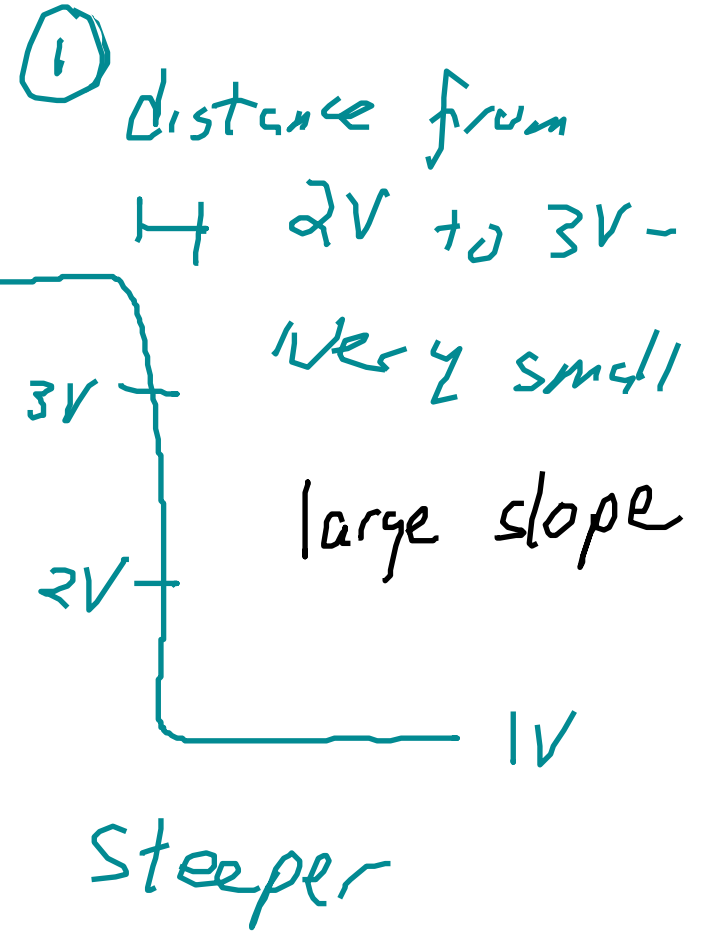 1
distance from
2V to 3V -
very small
3V
large slope
2V
1V
Steeper